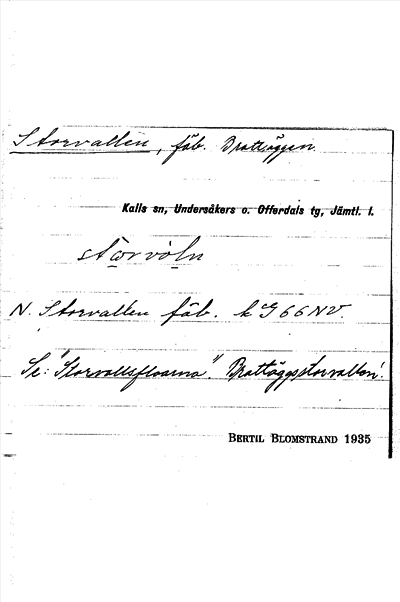 Storvallen, fäb. Brattäggen
Kalls sn, Undersåkers o. Offerdals tg, Jämtl. l.
stòrvòln
N. Storvallen fäb. k G 66 NV.
Se: "Storvallsfloarna". Brattäggstorvallen!
BERTIL BLOMSTRAND 1935